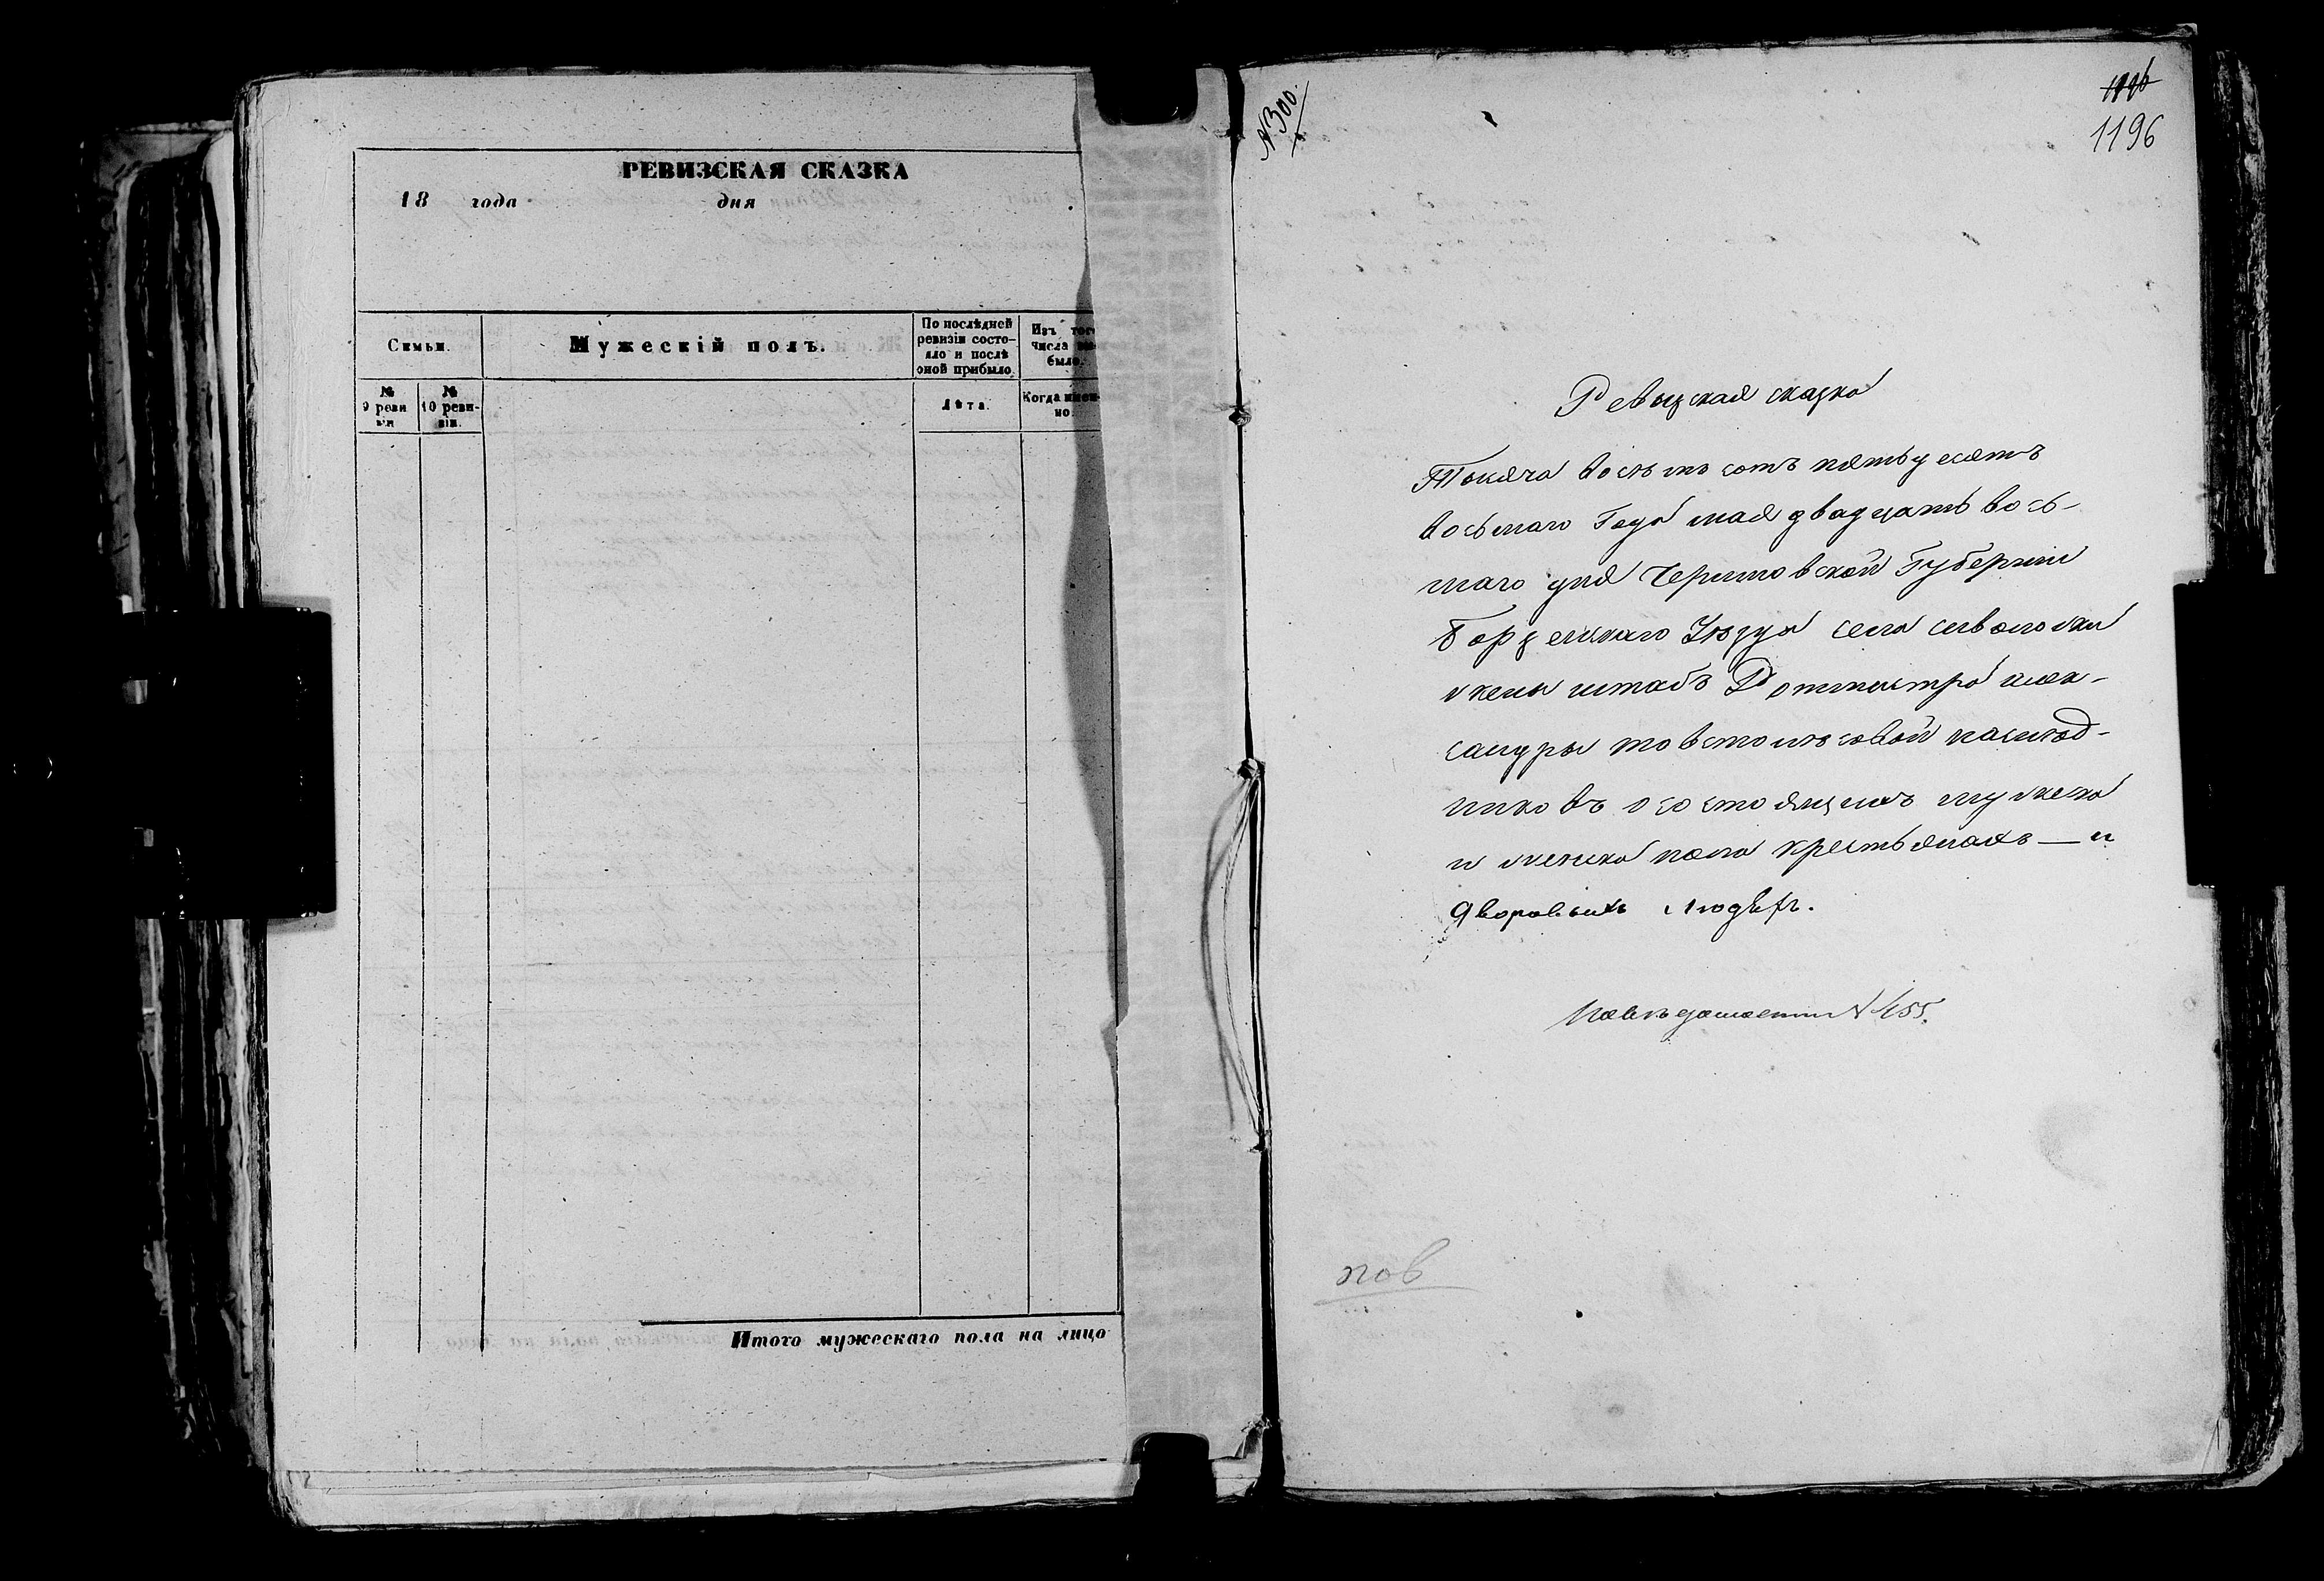 РЕВИЗСКАЯ СКАЗКА
18 года дня
Семьи.
Мужескій полъ.
По послѣдней ревизіи состояло и послѣ оной прибыло.
Изъ того числа выбыло.
№ 9 ревизіи
№ 10 ревизіи.
Лѣта.
Когда именно.
Итого мужескаго пола на лицо
№ 300.
1196
Ревизская сказка
Тысяча восемь сотъ пятьдесятъ
восьмаго Года мая двадцать вось-
маго дня Черниговской Губернии
Борзенскаго Уѣзда села сиволожи
жены штабъ Ротмистра алек-
сандры товстолѣсовой наслѣд-
никовъ о состоящихъ мужска
и женска пола крестьянахъ — и
дворовыхъ людѣхъ.
По вѣдомости № 455.
пов